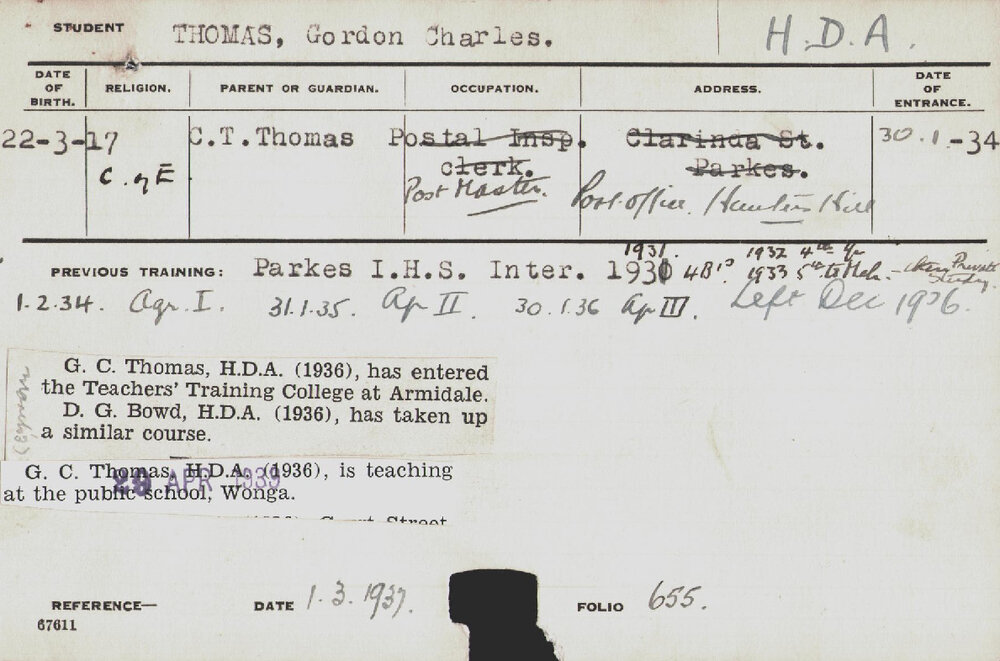 STUDENT THOMAS, Gordon Charles. H.D.A.
DATE OF BIRTH. RELIGION. PARENT OR GUARDIAN. OCCUPATION. ADDRESS. DATE OF ENTRANCE.
22-3-17 C.T.Thomas Postal Insp. Clarinda St. 30.1.-34
C. of E clerk. Parkes.
Post Master. Post office. Hunters Hill
1931. 1932 4th Yr
PREVIOUS TRAINING: Parkes I.H.S. Inter. 1931 4B's 1933 5th to Mch. - then Private Study.
1.2.34. Agr. I. 31.1.35. Ag II. 30.1.36 Ag III. Left Dec 1936.
G. C. Thomas, H.D.A. (1936), has entered
the Teachers' Training College at Armidale.
D. G. Bowd, H.D.A. (1936), has taken up
a similar course.
G. C. Thomas, H.D.A. (1936), is teaching
at the public school, Wonga.
28 APR 1939
Street
REFERENCE— DATE 1.3.1937. FOLIO 655.
67611